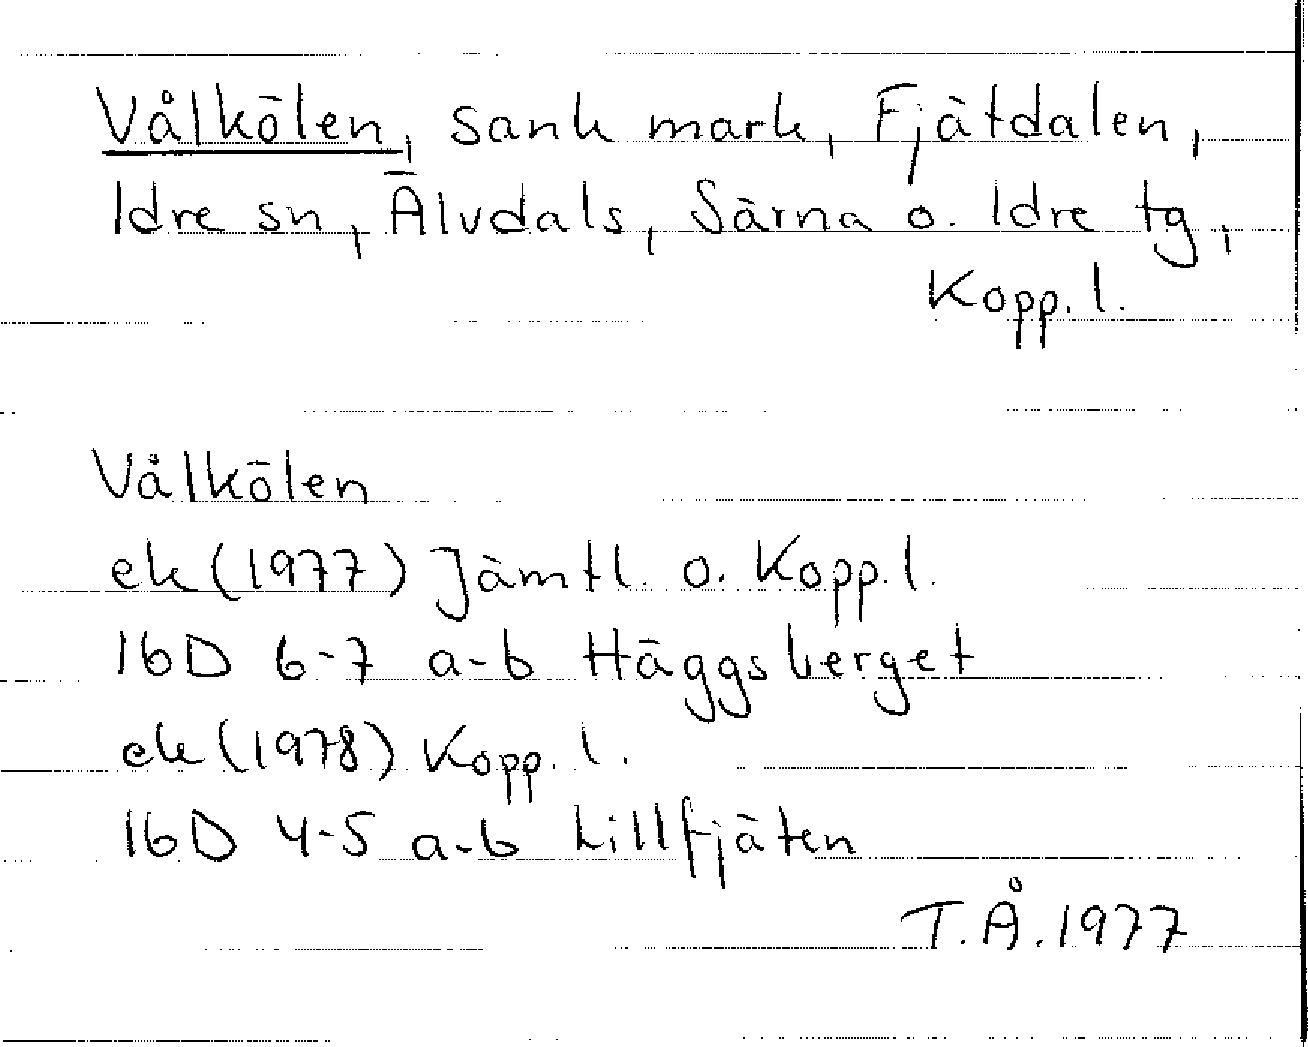 Vålkölen, sank mark, Fjätdalen,
Idre sn, Älvdals, Särna o. Idre tg,
Kopp. l.
Vålkölen
ek (1977) Jämtl. o. Kopp. l.
16D 6-7 a-b Häggsberget
ek (1978) Kopp. l.
16D 4-5 a-b Lillfjäten
T.Å. 1977